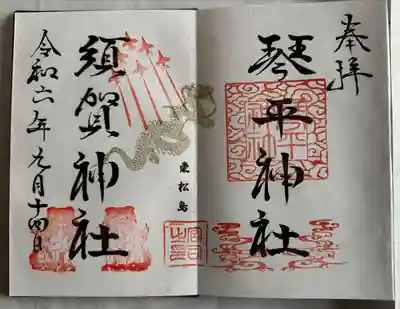 奉拝
琴平神社
東松島
須賀神社
令和六年元月十四日